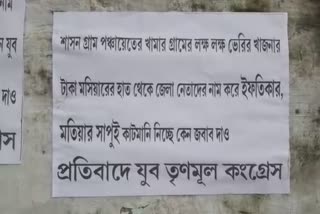 শাসন গ্রাম পঞ্চায়েতের খামার গ্রামের লক্ষ লক্ষ ভেরির খাজনার
টাকা মসিয়ারের হাত থেকে জেলা নেতাদের নাম করে ইফতিকার,
মতিয়ার সাপুই কাটমানি নিচ্ছে কেন জবাব দাও
প্রতিবাদে যুব তৃণমূল কংগ্রেস
যুব
দাও
গ্রেস